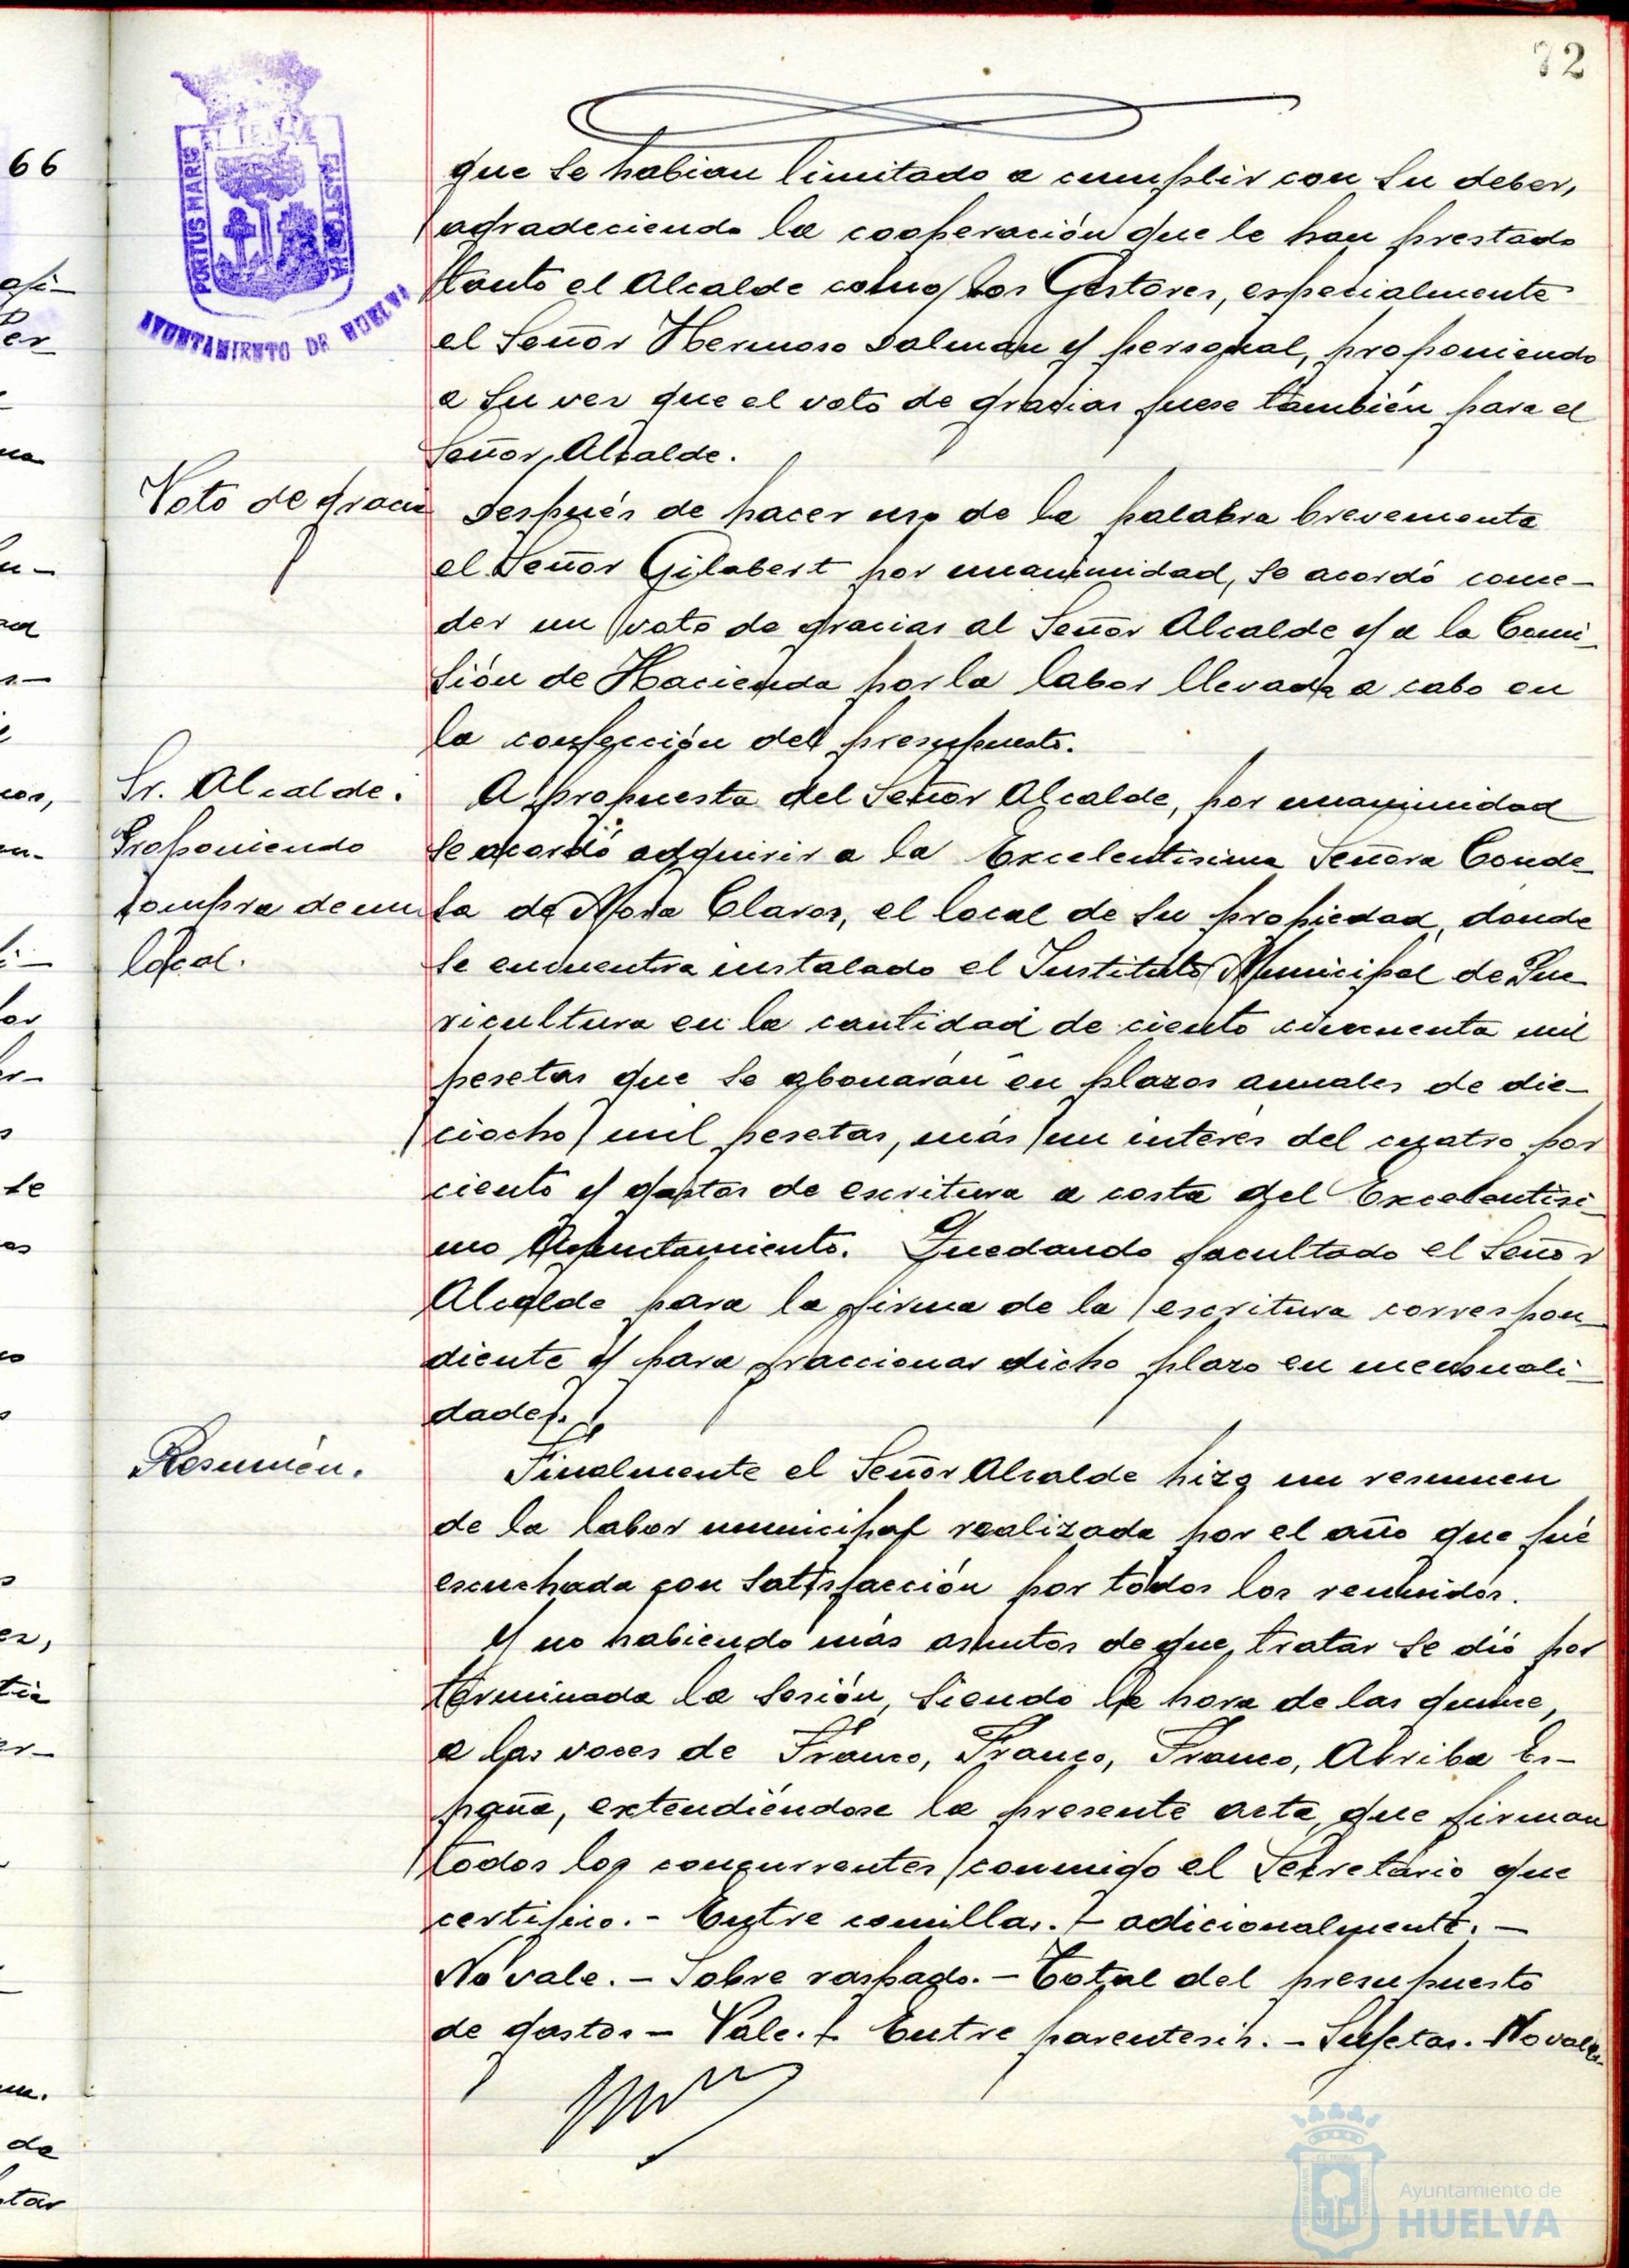 72
66
que se habian limitado a cumplir con su deber,
agradeciendo la cooperación que le han prestado
tanto el Alcalde como los Gestores, especialmente
el Señor Hermoso Dalman y personal, proponiendo
a su vez que el voto de gracias fuese también para el
Señor Alcalde.
Voto de graci
Después de hacer uso de la palabra brevemente
el Señor Gilabert por unanimidad, se acordó conce-
der un voto de gracias al Señor Alcalde y a la Comi-
sión de Hacienda por la labor llevada a cabo en
la confección del presupuesto.
Sr. Alcalde.
Proponiendo
compra de un
local.
A propuesta del Señor Alcalde, por unanimidad
se acordó adquirir a la Excelentisima Señora Conde-
sa de Mora Claros, el local de su propiedad, donde
se encuentra instalado el Instituto Municipal de Pue-
ricultura en la cantidad de ciento cincuenta mil
pesetas que se abonarán en plazos anuales de die-
ciocho mil pesetas, más un interés del cuatro por
ciento y gastos de escritura a costa del Excelentisi-
mo Ayuntamiento. Quedando facultado el Señor
Alcalde para la firma de la escritura correspon-
diente y para fraccionar dicho plazo en mensuali-
dades.
Resumén.
Finalmente el Señor Alcalde hizo un resumen
de la labor municipal realizada por el año que fué
escuchada con satisfacción por todos los reunidos.
Y no habiendo más asuntos de que tratar se dió por
terminada la sesión, siendo la hora de las quince,
a las voces de Franco, Franco, Franco, Arriba Es-
paña, extendiéndose la presente acta, que firman
todos los concurrentes conmigo el Secretario que
certifico. - Entre comillas. - adicionalmente. -
No vale. - Sobre raspado. - Total del presupuesto
de gastos - Vale. - Entre parentesis. - Sujetas. No vale.
PORTUS MARIS
CUSTODIA
AYUNTAMIENTO DE HUELVA
Ayuntamiento de
HUELVA